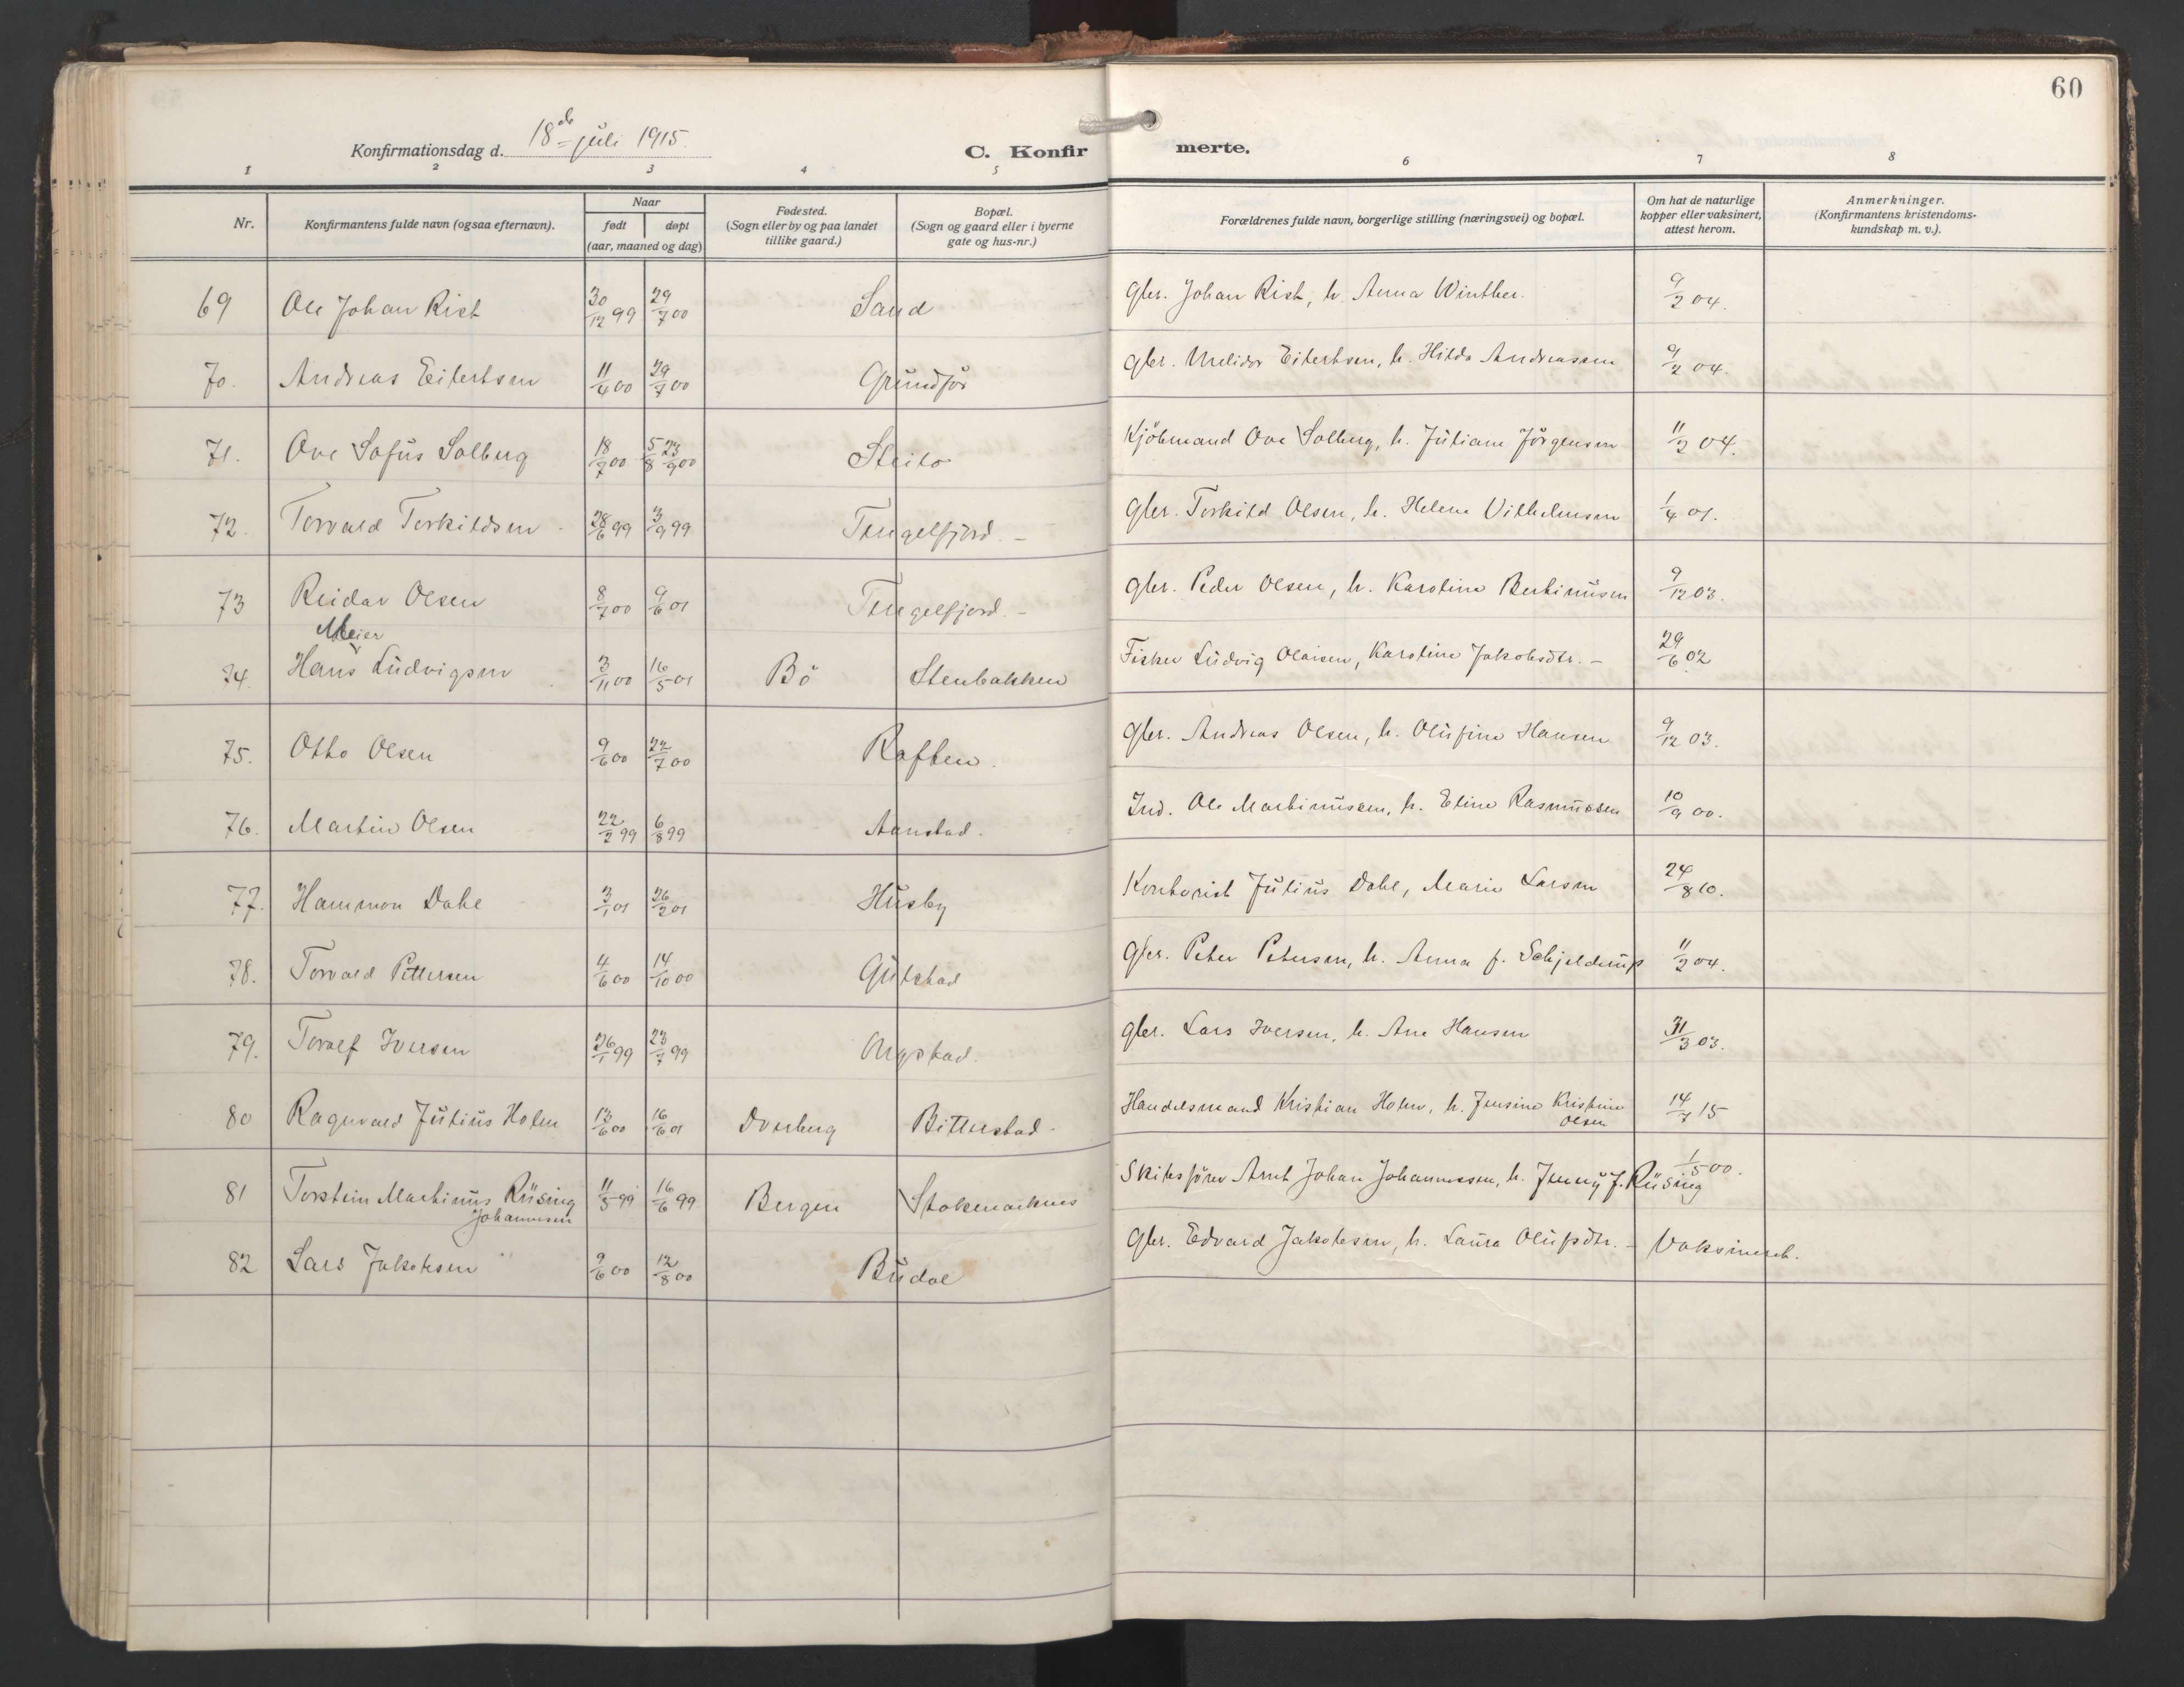 60
Konfirmationsdag d. 18de juli 1915.
C. Konfirmerte.
1 2 3 4 5 6 7 8
Nr. Konfirmantens fulde navn (ogsaa efternavn). Naar født døpt (aar, maaned og dag) Fødested. (Sogn eller by og paa landet tillike gaard.) Bopæl. (Sogn og gaard eller i byerne gate og hus-nr.) Forældrenes fulde navn, borgerlige stilling (næringsvei) og bopæl. Om hat de naturlige kopper eller vaksinert, attest herom. Anmerkninger. (Konfirmantens kristendoms-kundskap m. v.).
69 Ole Johan Rist 30/12 99 29/7 00 Sand Gbr. Johan Rist, h. Anna Winther. 9/2 04.
70. Andreas Eilertsen 11/4 00 29/7 00 Grundfør Gbr. Eilertsen, h. Hilda Andreassen 9/2 04.
71. Ove Sofus Solberg 18/7 00 5/8 23/9 00 Steilo Kjöbmand Ove Solberg, h. Juliane Jörgensen 11/2 04.
72. Torvald Torkildsen 28/6 99 3/9 99 Tengelfjord. - Gbr. Torkild Olsen, h. Helene Vilhelmsen 1/4 01.
73 Reidar Olsen 8/7 00 9/6 01 Tengelfjord - Gbr. Peder Olsen, h. Karoline Bertinusen 9/12 03.
74. Hans Meier Ludvigsen 3/11 00 16/5 01 Bö Stenbakken Fisker Ludvig Olaisen, Karoline Jakobsdtr. - 29/6 02
75. Otto Olsen 9/6 00 22/7 00 Raften. Gbr. Andreas Olsen, h. Olufine Hansen 9/12 03.
76. Martin Olsen 22/2 99 6/8 99 Aanstad. Ind. Ole Martinussen, h. Eline Rasmussen 10/9 00.
77. Hammon Dahl 3/1 01 26/2 01 Husby Kontorist Julius Dahl, Marie Larsen 24/8 10.
78. Torvald Pettersen 4/6 00 14/10 00 Gulstad Gbr. Peter Petersen, h. Anna f. Schjelderup 11/2 04.
79. Toralf Iversen 26/1 99 23/7 99 Ongstad. Gbr. Lars Iversen, h. Ane Hansen 31/3 03.
80 Ragnvald Julius Holm 13/6 00 16/6 01 Dverberg Bitterstad. Handelsmand Kristian Holm, h. Jensine Kristine Olsen 14/7 15
81 Torstein Martinus Rüsing Johannesen 11/5 99 16/6 99 Bergen Stokmarknes Skibsfører Arnt Johan Johannessen, h. Jenny f. Rüsing 1/5 00.
82 Lars Jakobsen 9/6 00 12/8 00 Budal Gbr. Edvard Jakobsen, h. Laura Olufsdtr. - Vaksinert.